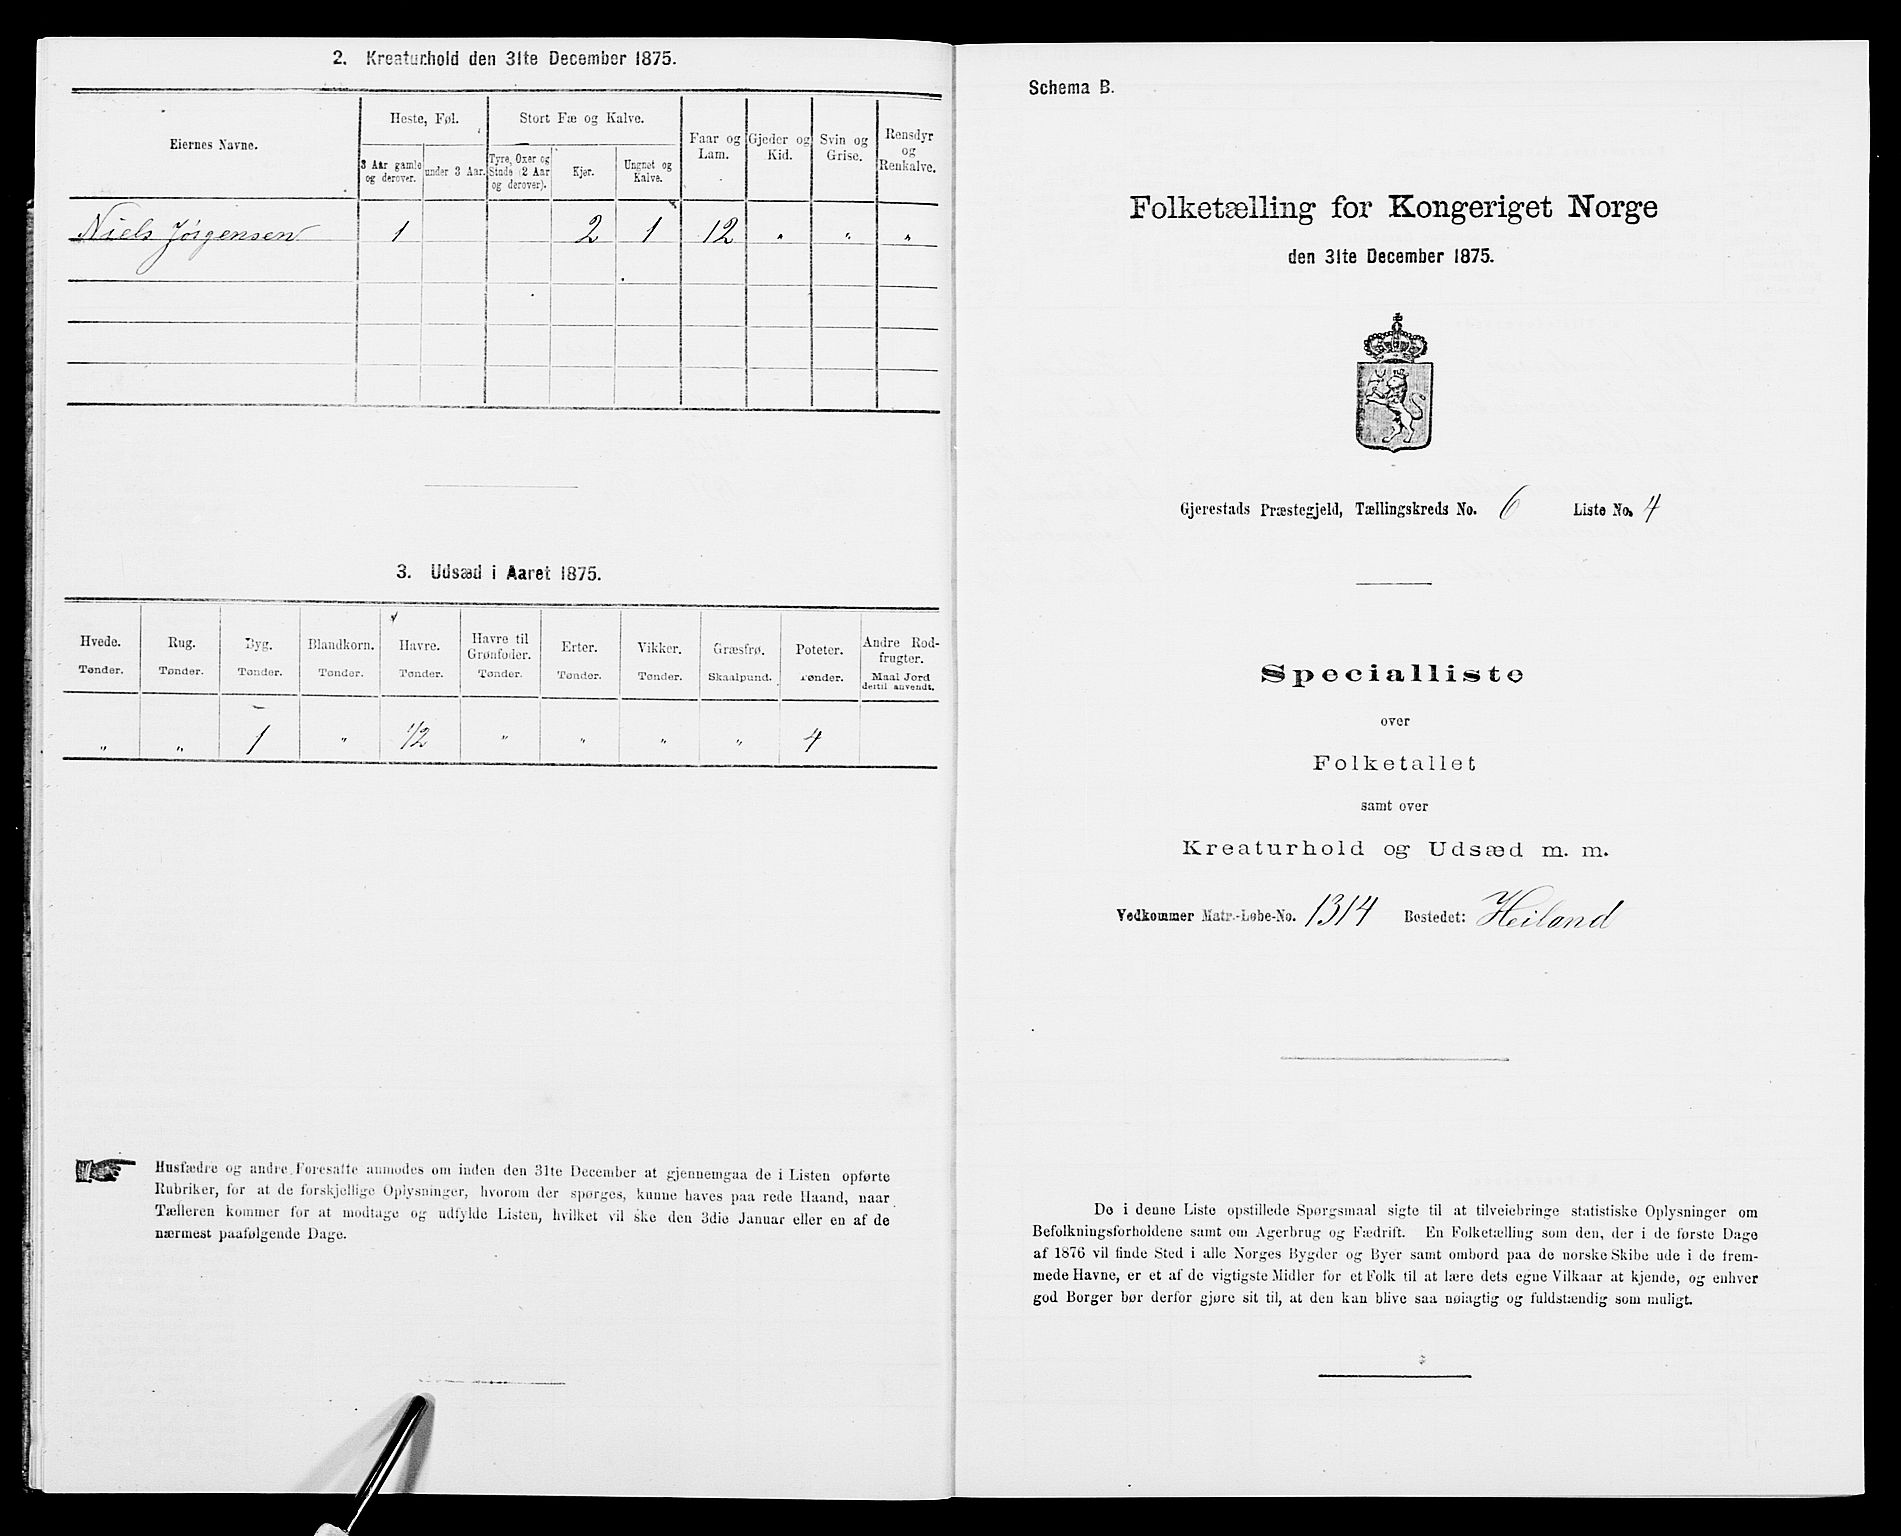 2. Kreaturhold den 31te December 1875.
Eiernes Navne.
Heste, Føl.
Stort Fæ og Kalve.
Faar og Lam.
Gjeder og Kid.
Svin og Grise.
Rensdyr og Renkalve.
3 Aar gamle og derover.
under 3 Aar.
Tyre, Oxer og Stude (2 Aar og derover).
Kjør.
Ungnøt og Kalve.
Niels Jørgensen 1 2 1 12 " " "
3. Udsæd i Aaret 1875.
Hvede. Rug. Byg. Blandkorn. Havre. Havre til Grønfoder. Erter. Vikker. Græsfrø. Poteter. Andre Rodfrugter.
Tønder. Tønder. Tønder. Tønder. Tønder. Tønder. Tønder. Tønder. Skaalpund. Tønder. Maal Jord dertil anvendt.
" " 1 " 1/2 " " " " 4
Husfædre og andre Foresatte anmodes om inden den 31te December at gjennemgaa de i Listen opførte
Rubriker, for at de forskjellige Oplysninger, hvorom der spørges, kunne haves paa rede Haand, naar
Tælleren kommer for at modtage og udfylde Listen, hvilket vil ske den 3die Januar eller en af de
nærmest paafølgende Dage.
Schema B.
Folketælling for Kongeriget Norge
den 31te December 1875.
Gjerestads Præstegjeld, Tællingskreds No. 6 Liste No. 4
Specialliste
over
Folketallet
samt over
Kreaturhold og Udsæd m. m.
Vedkommer Matr.-Løbe-No. 1314 Bostedet: Heiland
De i denne Liste opstillede Spørgsmaal sigte til at tilveiebringe statistiske Oplysninger om
Befolkningsforholdene samt om Agerbrug og Fædrift. En Folketælling som den, der i de første Dage
af 1876 vil finde Sted i alle Norges Bygder og Byer samt ombord paa de norske Skibe ude i de frem-
mede Havne, er et af de vigtigste Midler for et Folk til at lære dets egne Vilkaar at kjende, og enhver
god Borger bør derfor gjøre sit til, at den kan blive saa nøiagtig og fuldstændig som muligt.